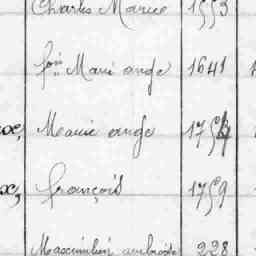 Charles Marie 1753
fois Marie ange 1641
Marie ange 175
françois 1759
Maximilien ambroise 228